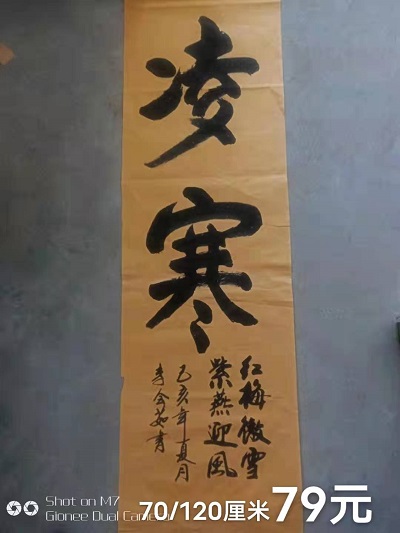 凌寒
红梅傲雪
紫燕迎風
己亥年夏月
Shot on M7
Gionee Dual Camera
70/120厘米79元